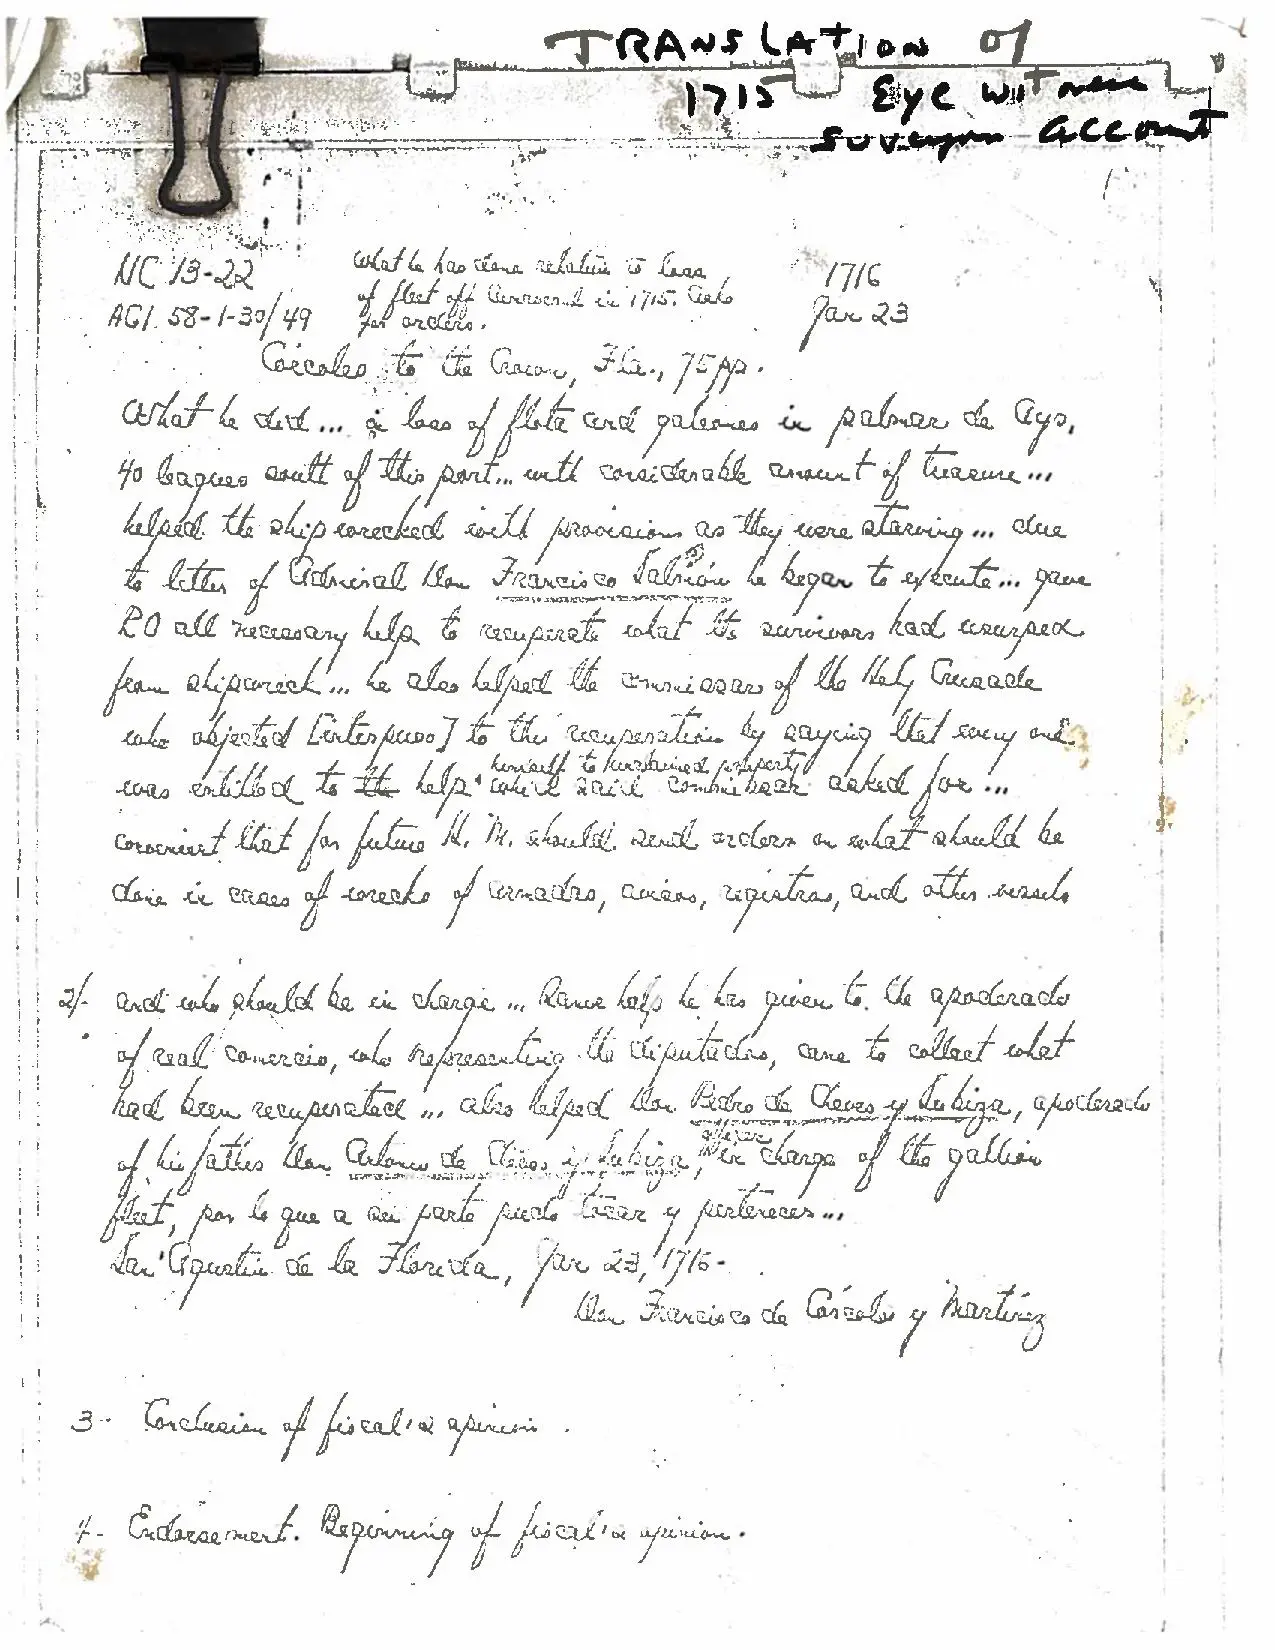 TRANSLATION of
1715 Eye witness
survivors account
1
NC 13-22
What he has done relative to loss
of fleet off Carnaveral in 1715. Asks
for orders.
1716
Jan 23
AGI 58-1-30/49
Córcoles to the Crown, Fla., 75 pp.
What he did... in loss of flota and galeones in palmar de Ays,
40 leagues south of this port... with considerable amount of treasure...
helped the shipwrecked with provisions as they were starving... due
to letter of Admiral Don Francisco Salmón (?) he began to execute... gave
RO all necessary help to recuperate what the survivors had usurped
from shipwreck... he also helped the commissar of the Holy Crusade
who objected [interpuso] to this recuperation by saying that every one
himself to furtained property
was entitled to the help which said commissar asked for...
convenient that for future H. M. should send orders on what should be
done in cases of wrecks of armadas, avisos, registros, and other vessels
2/- and who should be in charge... Same help he has given to the apoderado
of real comercio, who representing the diputados, came to collect what
had been recuperated... also helped Don Pedro de Cheves y Subiza, apoderado
officer
of his father Don Antonio de Cheves y Subiza, in charge of the gallion
fleet, por lo que a su parte pudo tocar y pertenecer...
San Agustin de la Florida, Jan 23, 1716-
Don Francisco de Córcoles y Martínez
3- Conclusion of fiscal's opinion.
4- Endorsement. Beginning of fiscal's opinion.